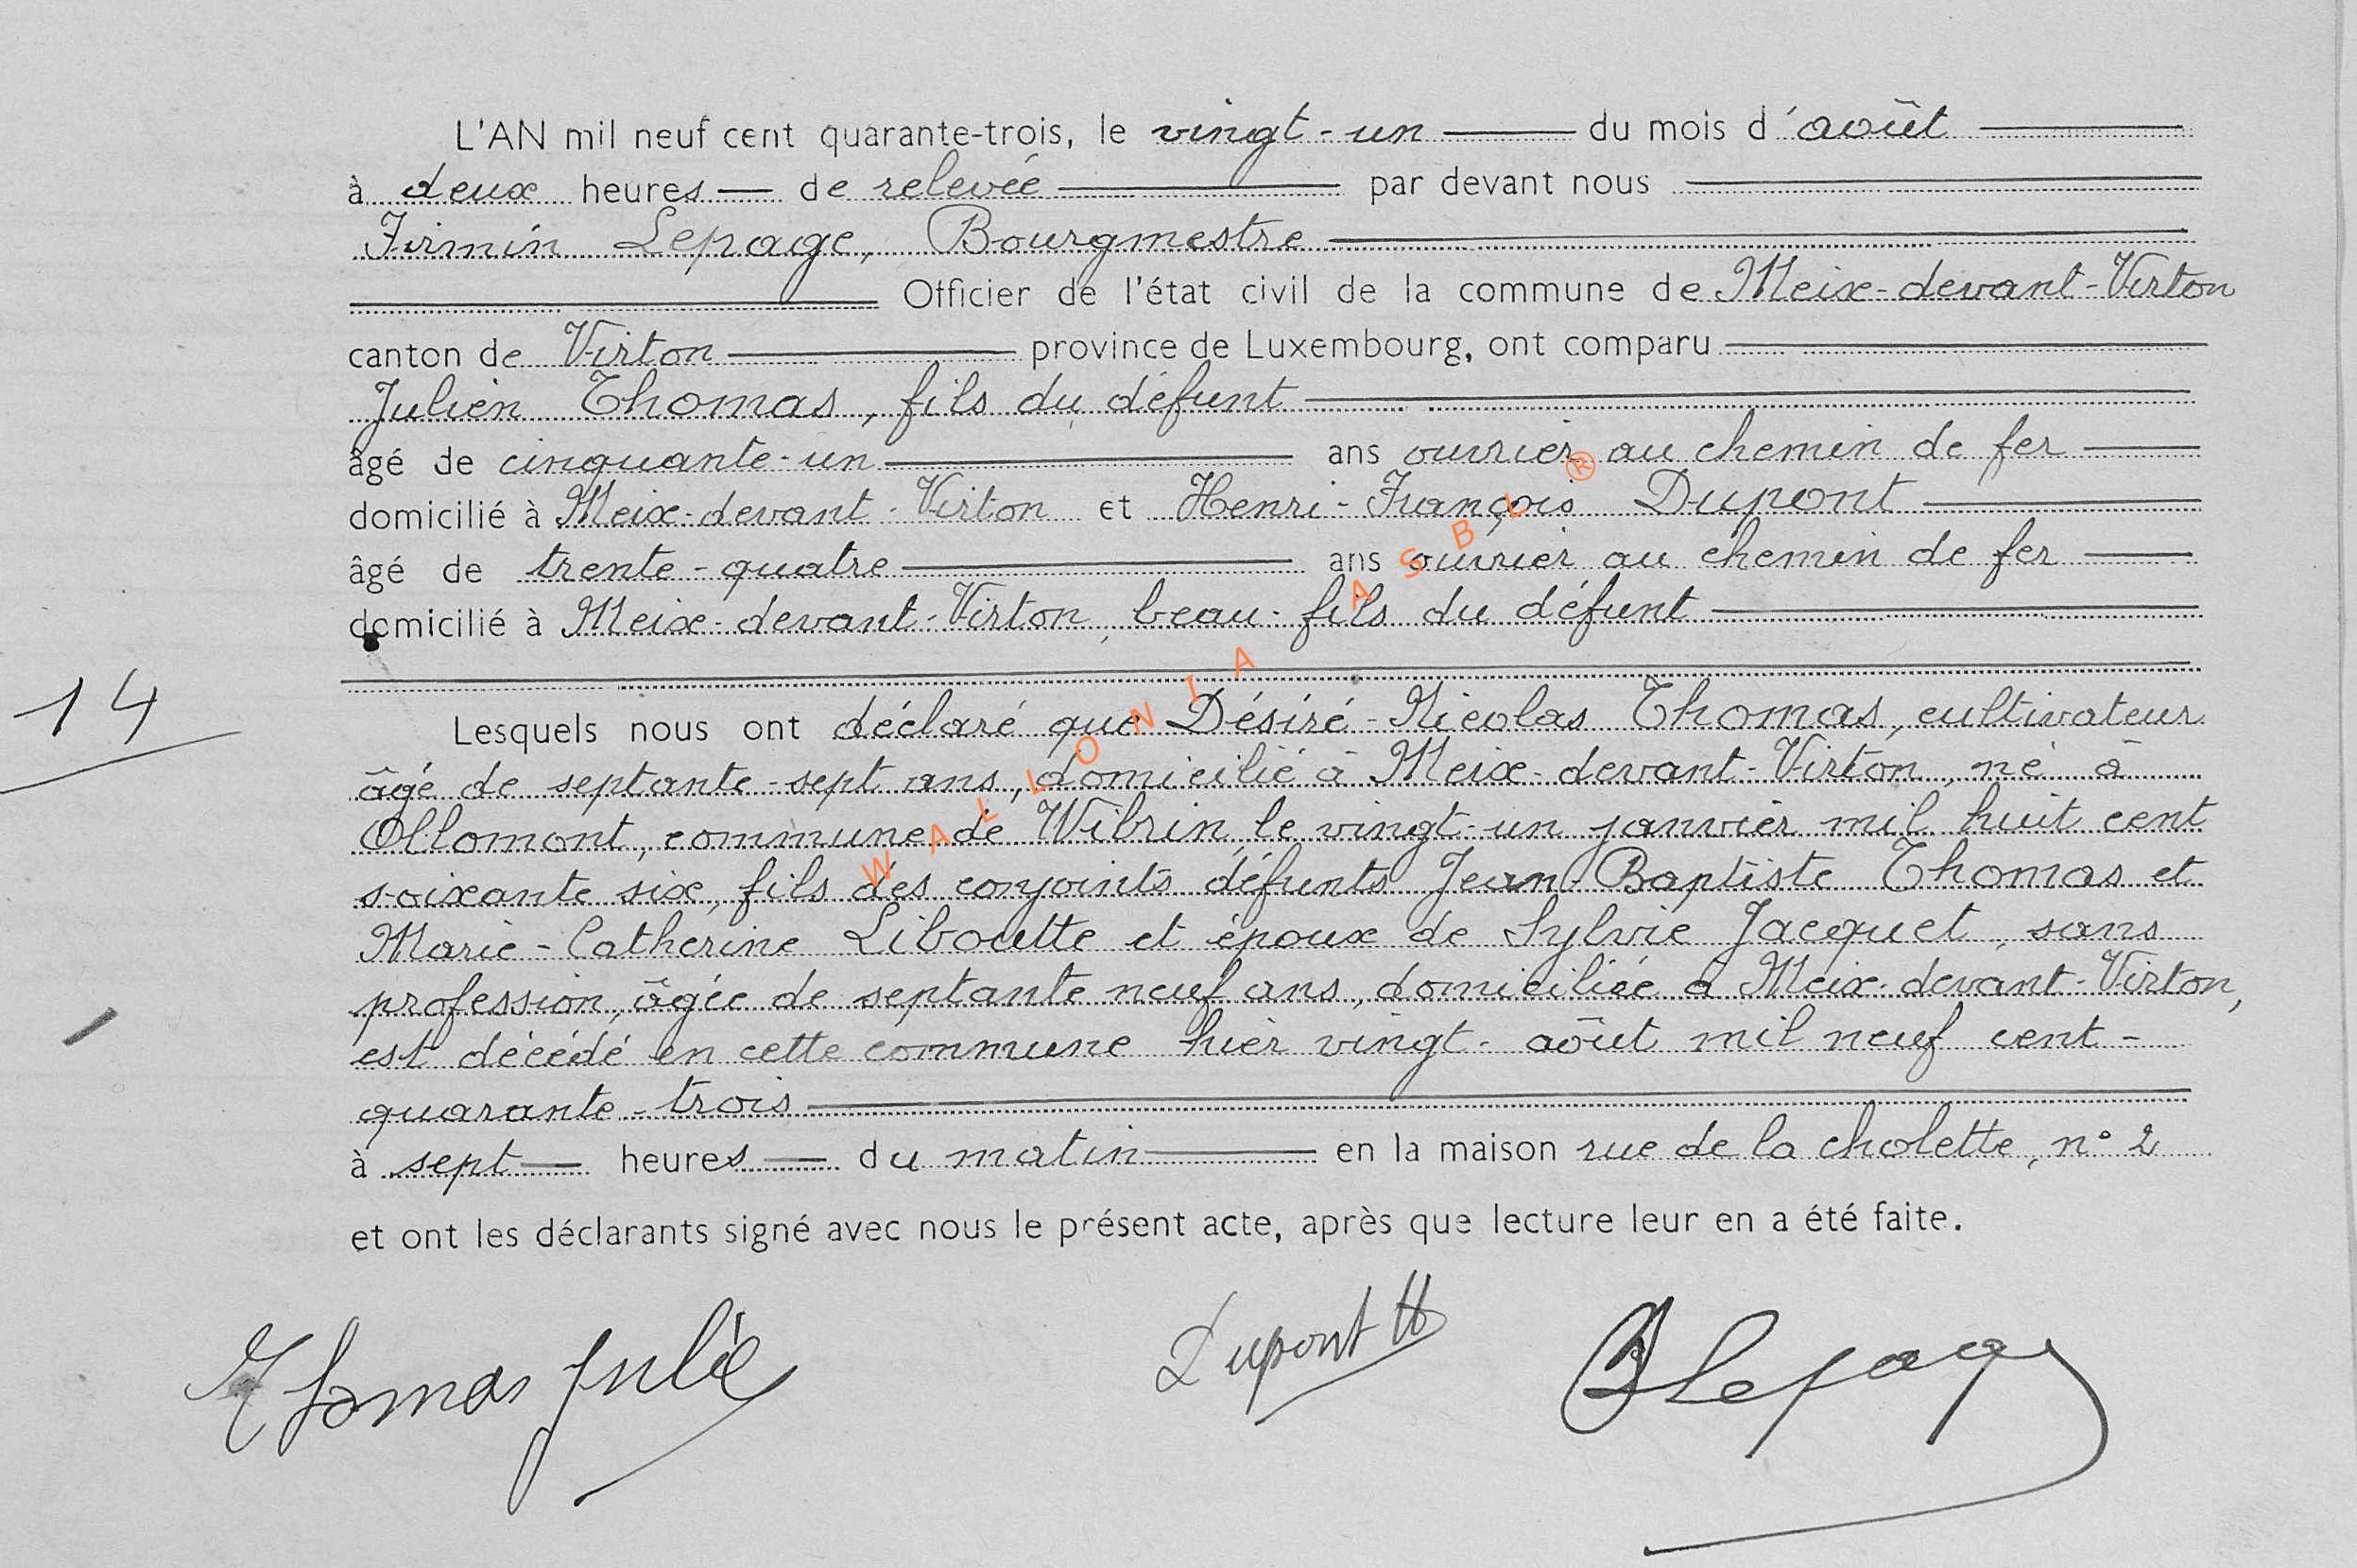 L'AN mil neuf cent quarante-trois, le vingt-un du mois d'août
à deux heures de relevée par devant nous
Firmin Lepage, Bourgmestre
Officier de l'état civil de la commune de Meix-devant-Virton
canton de Virton province de Luxembourg, ont comparu
Julien Thomas, fils du défunt
âgé de cinquante-un ans ouvrier au chemin de fer
domicilié à Meix-devant-Virton et Henri-François Dupont
âgé de trente-quatre ans ouvrier au chemin de fer
domicilié à Meix-devant-Virton, beau-fils du défunt
14
Lesquels nous ont déclaré que Désiré-Nicolas Thomas, cultivateur
âgé de septante-sept ans, domicilié à Meix-devant-Virton, né à
Ollomont, commune de Wibrin le vingt-un janvier mil huit cent
soixante six, fils des conjoints défunts Jean-Baptiste Thomas et
Marie-Catherine Liboutte et époux de Sylvie Jacquet, sans
profession, âgée de septante neuf ans, domiciliée à Meix-devant-Virton,
est décédé en cette commune hier vingt-août mil neuf cent-
quarante-trois
à sept heures du matin en la maison rue de la cholette, n° 2
et ont les déclarants signé avec nous le présent acte, après que lecture leur en a été faite.
Thomas Julien Dupont H Flepage
WALLONIA ASBL ®